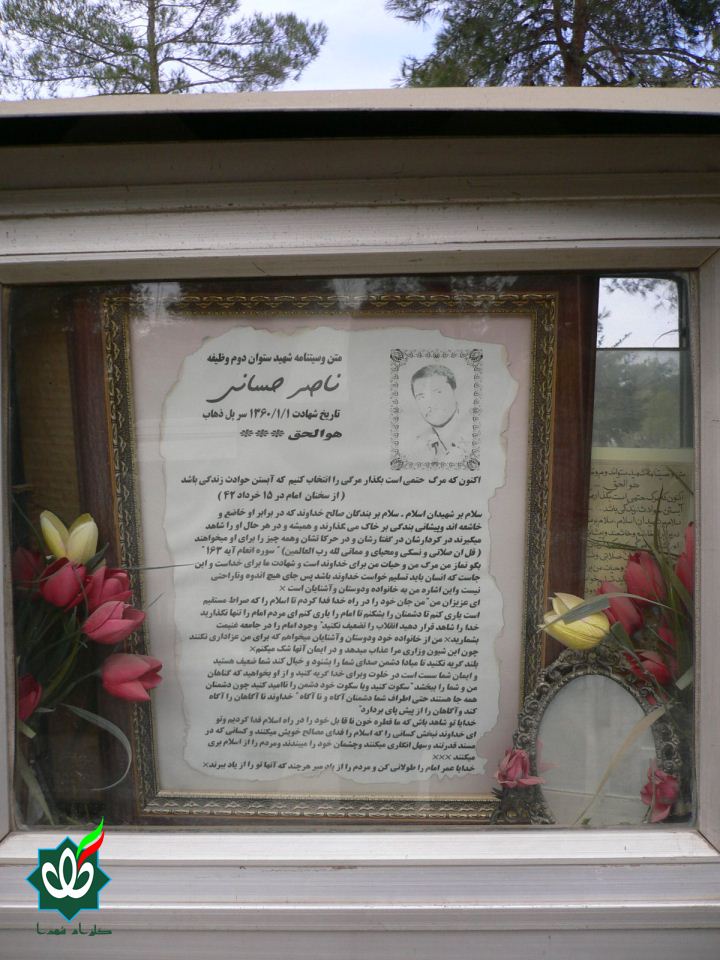 متن وصیتنامه شهید ستوان دوم وظیفه
ناصر حسانی
تاریخ شهادت ۱۳۶۰/۱/۱ سر پل ذهاب
هوالحق ***
اکنون که مرگ حتمی است بگذار مرگی را انتخاب کنیم که آبستن حوادث زندگی باشد
( از سخنان امام در ۱۵ خرداد ۴۲ )
سلام بر شهیدان اسلام ـ سلام بر بندگان صالح خداوند که در برابر او خاضع و
خاشعه اند وپیشانی بندگی بر خاک می گذارند و همیشه و در هر حال او را شاهد
میگیرند در کردارشان در گفتا رشان و در حرکا تشان وهمه چیز را برای او میخواهند
( قل ان صلاتی و نسکی ومحیای و مماتی لله رب العالمین) " سوره انعام آیه ۱۶۳ "
بگو نماز من مرگ من و حیات من برای خداوند است و شهادت ما برای خداست و این
جاست که انسان باید تسلیم خواست خداوند باشد پس جای هیچ اندوه وناراحتی
نیست واین اشاره من به خانواده ودوستان وآشنایان است ×
ای عزیزان من "من جان خود را در راه خدا فدا کردم تا اسلام را که صراط مستقیم
است یاری کنم تا دشمنان را بشکنم تا امام را یاری کنم ای مردم امام را تنها نگذارید
خدا را شاهد قرار دهید انقلاب را تضعیف نکنید" وجود امام را در جامعه غنیمت
بشمارید× من از خانواده خود ودوستان و آشنایان میخواهم که برای من عزاداری نکنند
چون این شیون وزاری مرا عذاب میدهد و در ایمان آنها شک میکنم×
بلند گریه نکنید تا مبادا دشمن صدای شما را بشنود و خیال کند شما ضعیف هستید
و ایمان شما سست است در خلوت وبرای خدا گریه کنید و از او بخواهید که گناهان
من و شما را ببخشد" سکوت کنید وبا سکوت خود دشمن را ناامید کنید چون دشمنان
همه جا هستند حتی اطراف شما دشمنان آگاه و نا آگاه " خداوند نا آگاهان را آگاه
کند وآگاهان را از پیش پای بردارد"
خدایا تو شاهد باش که ما قطره خون نا قا بل خود را در راه اسلام فدا کردیم وتو
ای خداوند نبخش کسانی را که اسلام را فدای مصالح خویش میکنند و کسانی که در
مسند قدرتند وسهل انگاری میکنند وچشمان خود را میبندند ومردم را از اسلام بری
میکنند ×××
خدایا عمر امام را طولانی کن و مردم را از یاد مبر هرچند که آنها تو را از یاد ببرند×
هوالحق